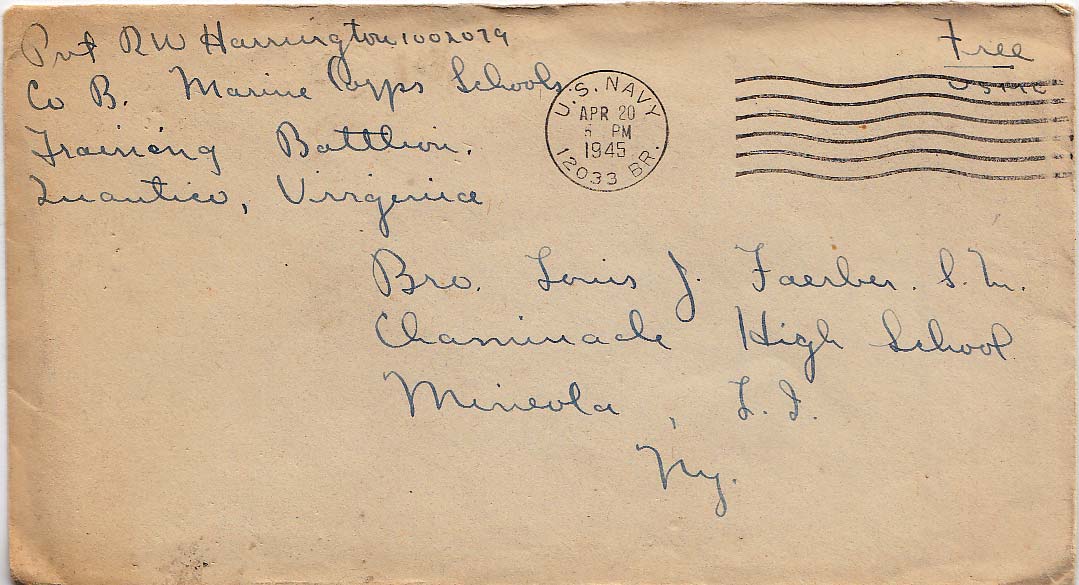 Pvt RW Harrington 1002079
Co B. Marine Corps Schools
Training Battlion.
Quantico, Virgenia
Free
USMC
U.S. NAVY
APR 20
PM
1945
12033 BR.
Bro. Louis J. Faerber. S.M.
Chaminade High School
Mineola, L.I.
Ny.